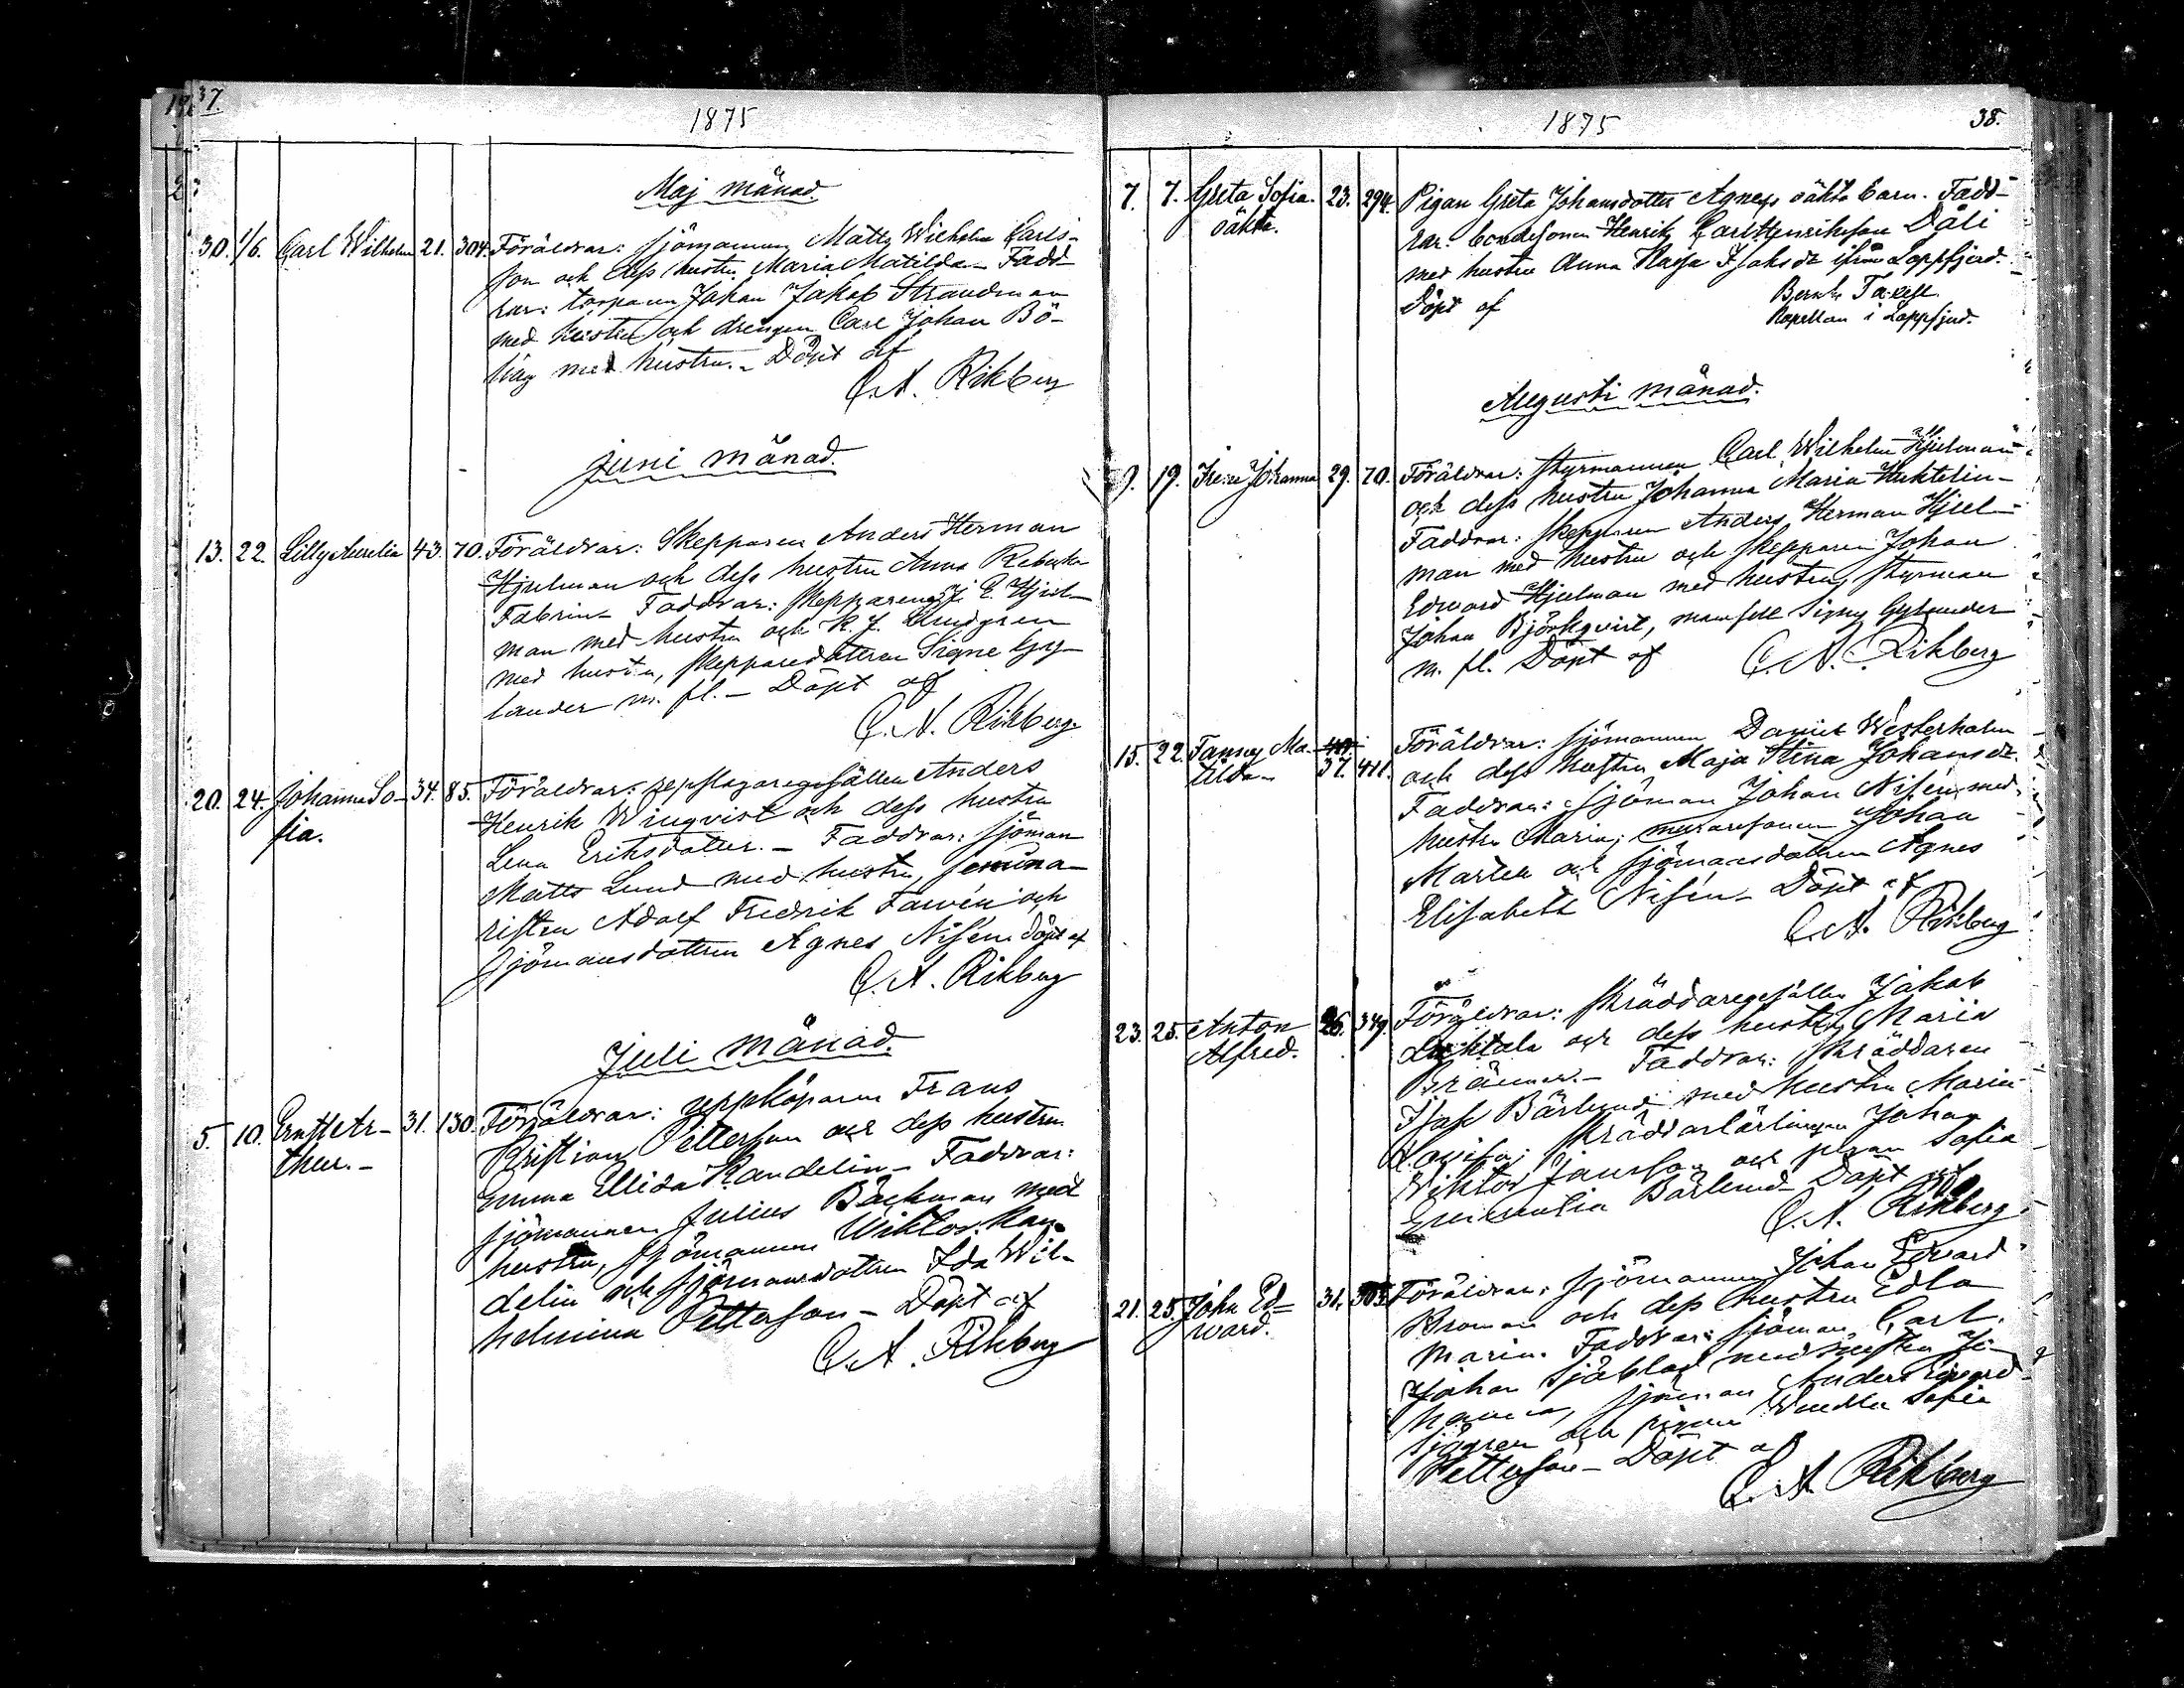 37.
1875
Maj månad.
30. 1/6. Carl Wilhelm 21. 304. Föräldrar: sjömannen Matts Wilhelm Carls-
son och dess hustru Maria Matilda - Fadd-
rar: torparen Johan Jakob Strandman
med hustru och drengen Carl Johan Bö-
ling med hustru. - Döpt af
C. A. Rikberg
Juni månad.
13. 22. Lilly Aurelia 43. 70. Föräldrar: Skepparen Anders Herman
Hjulman och dess hustru Anna Rebecka
Fabrin - Faddrar: skepparena J. E. Hjul-
man med hustru och K. J. Lindgren
med hustru, skepparedottren Signe Gyl-
lander m. fl. - Döpt af
C. A. Rikberg.
20. 24. Johanna So- 34. 85. Föräldrar: repslagaregesällen Anders
fia. Henrik Winqvist och dess hustru
Lena Eriksdotter. - Faddrar: sjöman
Matts Lund med hustru, semina-
risten Adolf Fredrik Tarvén och
sjömansdottren Agnes Nisén. Döpt af
C. A. Rikberg
Juli månad.
5. 10. Ernst Ar- 31. 130. Föräldrar: uppköparen Frans
thur. - Kristian Petterson och dess hustru
Emma Elida Randelin - Faddrar:
sjömannen Julius Bäckman med
hustru, sjömannen Wiktor Ran-
delin och sjömansdottren Ida Wil-
helmina Petterson - Döpt af
C. A. Rikberg
1875
38.
7. 7. Greta Sofia. 23. 294. Pigan Greta Johansdotter Agnes oäkta barn. Fadd-
oäkta. rar: bondesonen Henrik Carl Henriksson Dåli
med hustru Anna Kajsa Isaksdr ifrån Lappfjerd.
Döpt af
Kapellan i Lappfjerd.
Augusti månad.
9. 19. Irene Johanna 29. 70. Föräldrar: styrmannen Carl Wilhelm Hjulman
och dess hustru Johanna Maria Huktelin -
Faddrar: skepparen Anders Herman Hjul-
man med hustru och skepparen Johan
Edward Hjulman med hustru, styrman
Johan Björkqvist, mamsell Signe Gylander
m. fl. Döpt af C. A. Rikberg
15. 22. Fanny Ma- Föräldrar: sjömannen Daniel Westerholm
tilda - 37. 411. och dess hustru Maja Stina Johansdr.
Faddrar: sjöman Johan Nisén med
hustru Maria; muraresonen Johan
Marten och sjömansdottren Agnes
Elisabeth Nisén - Döpt af
C. A. Rikberg
23. 25. Anton 26. 349. Föräldrar: skräddaregesällen Jakob
Alfred. och dess hustru Maria
Brännar. - Faddrar: skräddaren
Isak Bärlund med hustru Maria
Lovisa; skräddarlärlingen Johan
Wiktor Jansson och pigan Sofia
Bärlund - Döpt af
C. A. Rikberg
21. 25. John Ed- 31. 305. Föräldrar: sjömannen Johan Edvard
ward. Broman och dess hustru Edla
Maria. Faddrar: sjöman Carl
Johan Sjöblad med hustru Jo-
hanna, sjöman Anders Edvard
Sjögren och pigan Wendla Sofia
Petterson - Döpt af
C. A. Rikberg